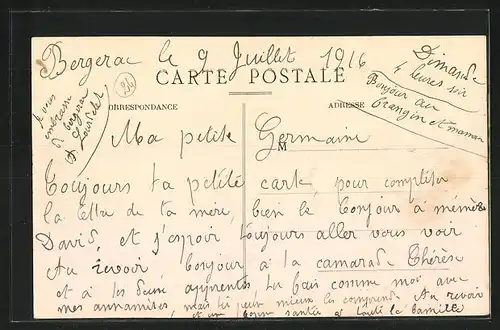 Bergerac le 9 Juillet 1916
Dimanche
4 heures soir
CARTE POSTALE
Bonjour au
et maman
CORRESPONDANCE
ADRESSE
je vous
embrasse
de bergerac
Ma petite Germaine
M
Toujours ta petite carte, pour completer
la lettre de ta mère, bien le bonjour à mémère
David, et j'espoir toujours aller vous voir
Au revoir, bonjour à la camarade Thérèse
et à les deux apprentis, tu fais comme moi avec
mes annamites, mais toi peux mieux les comprendre Au revoir
et bonne santé à toute la famille